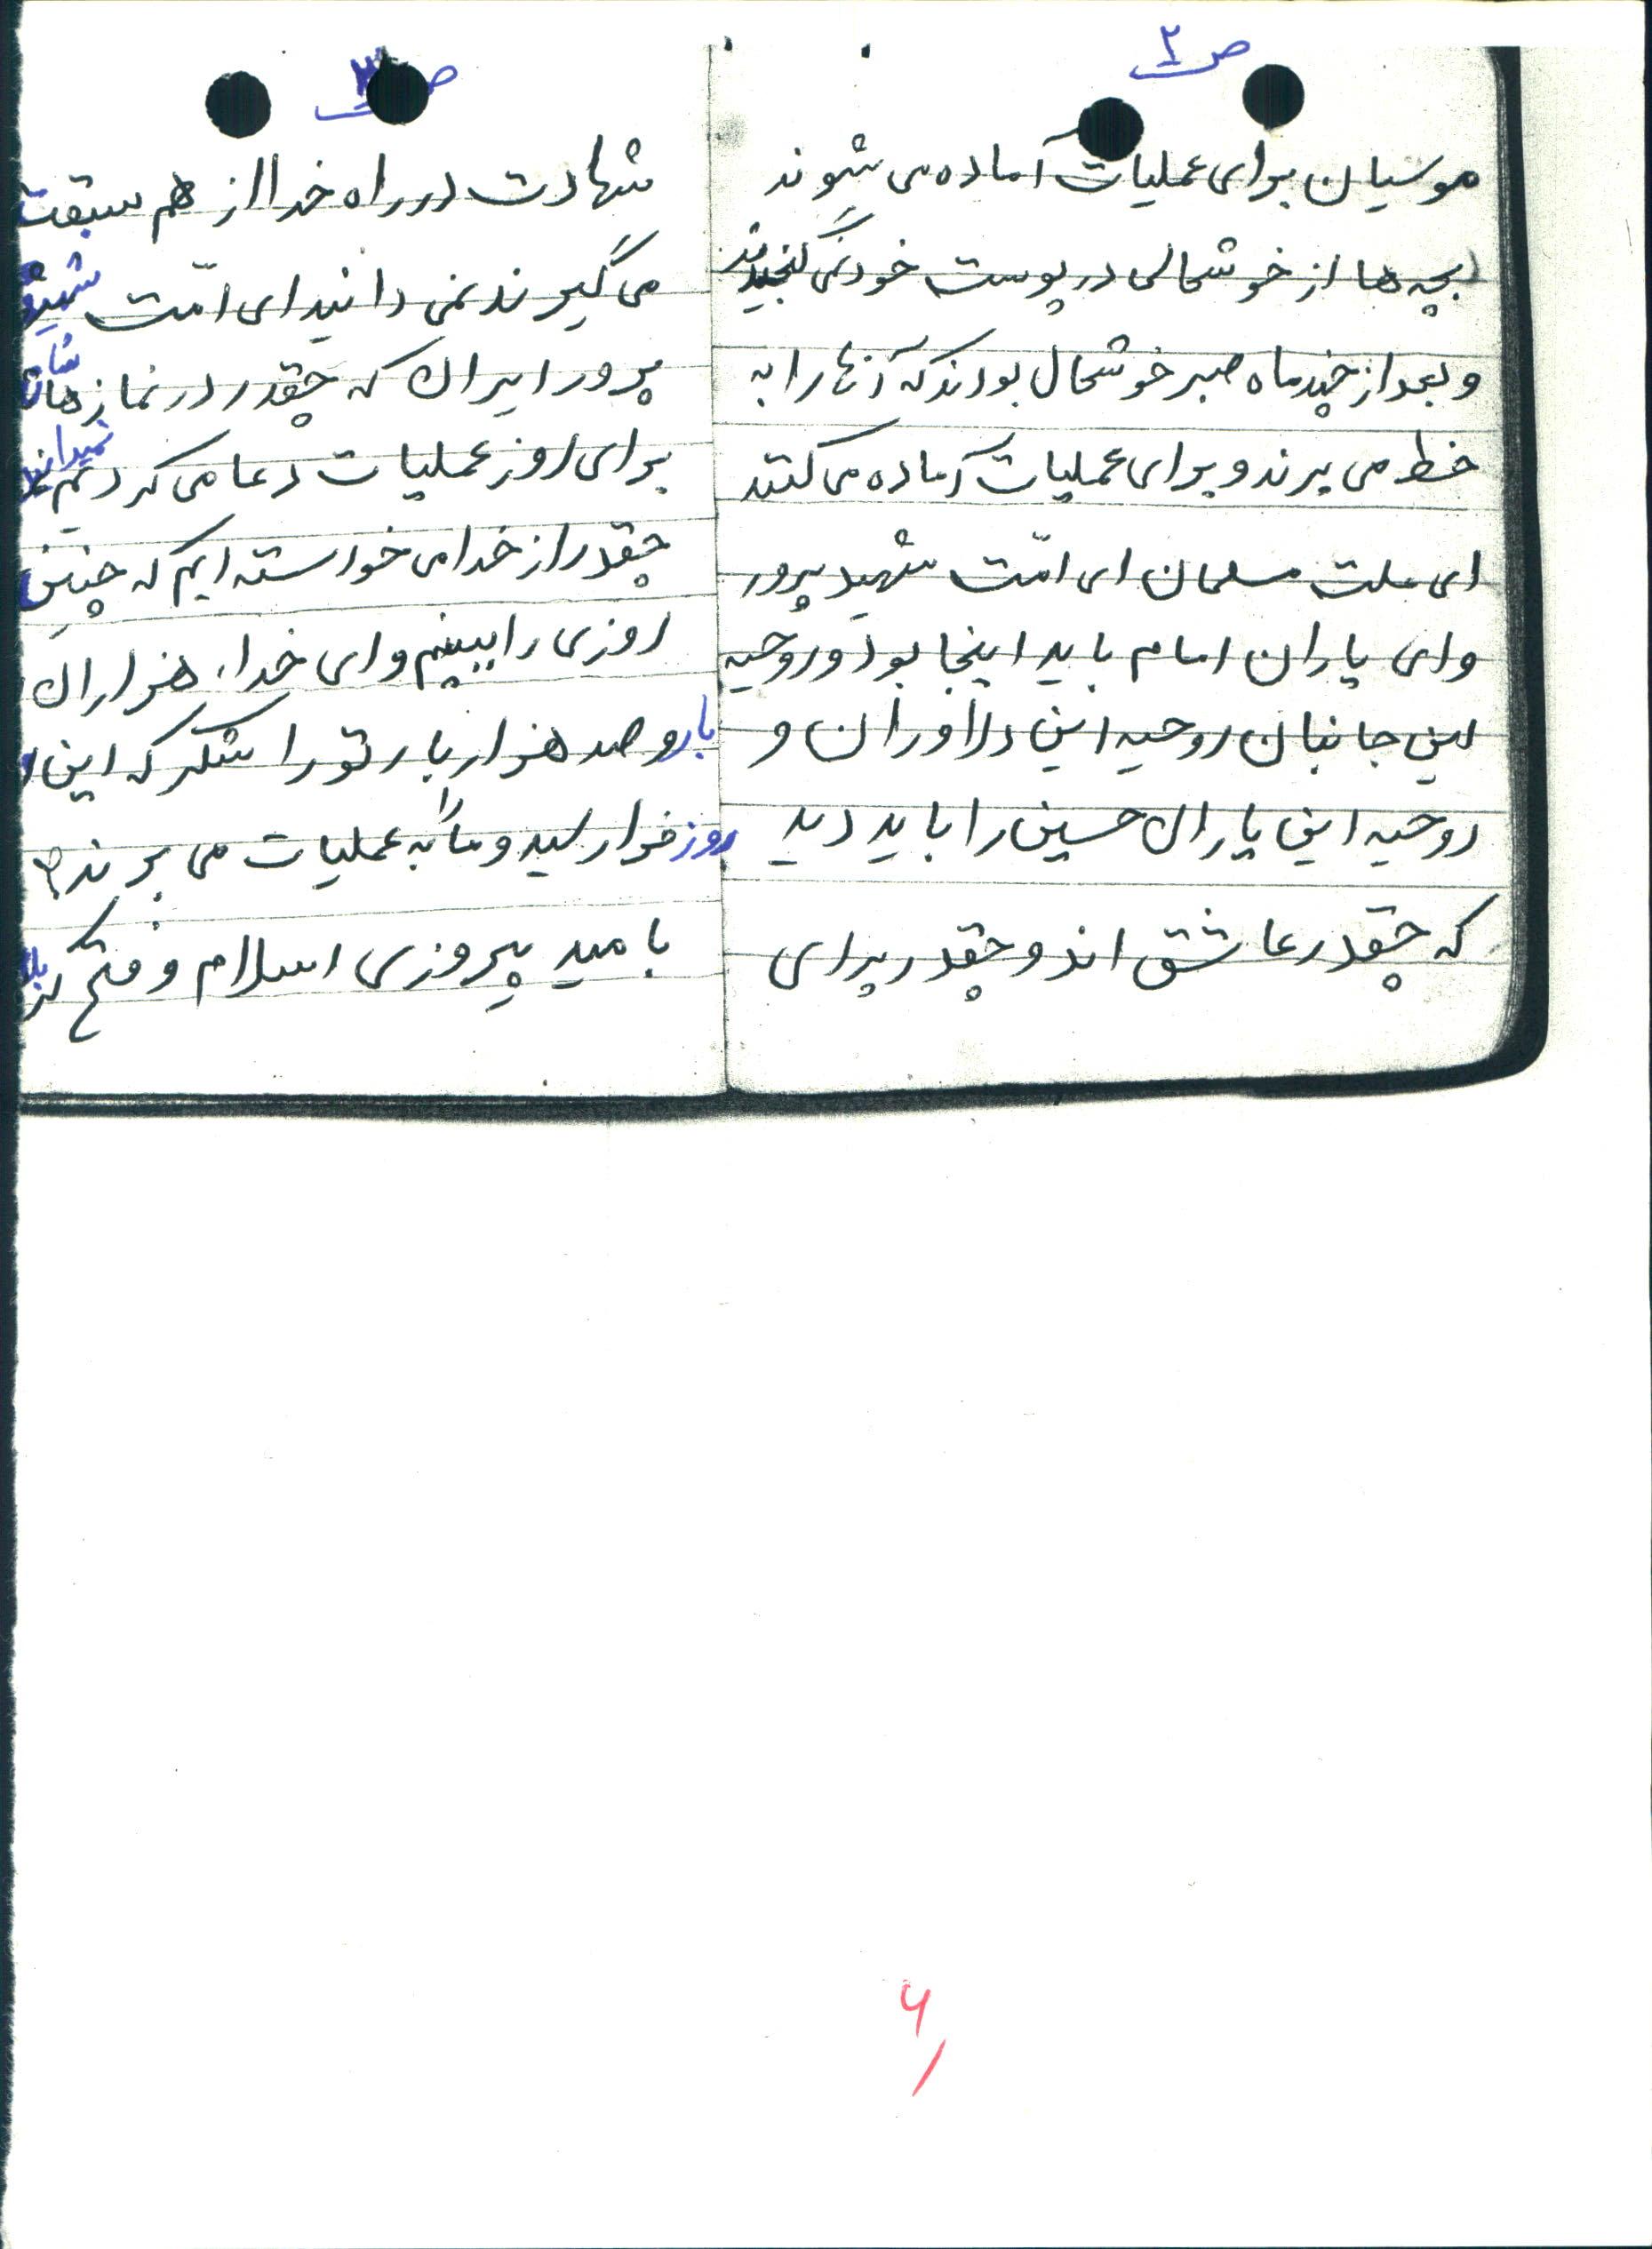 ص ۲
موسیان برای عملیات آماده می شوند
بچه ها از خوشحالی در پوست خود نمی گنجیدند
و بعد از چند ماه صبر خوشحال بودند که آنها را به
خط می برند و برای عملیات آماده می کنند
ای ملت مسلمان ای امّت شهید پرور
و ای یاران امام باید اینجا بود و روحیه
این جانبان روحیه این دلاوران و
روحیه این یاران حسین را باید دید
که چقدر عاشق اند و چقدر برای
ص ۳
شهادت در راه خدا از هم سبقت
می گیرند نمی دانید ای امّت شهید
پرور ایران که چقدر در نمازهامان
برای روز عملیات دعا می کردیم نمیدانید
چقدر از خدا می خواسته ایم که چنین
روزی را ببینم و ای خدا، هزاران
بار و صد هزار بار تو را شکر که این
روز فرا رسید و ما را به عملیات می برند
بامید پیروزی اسلام و فتح کربلا
۴